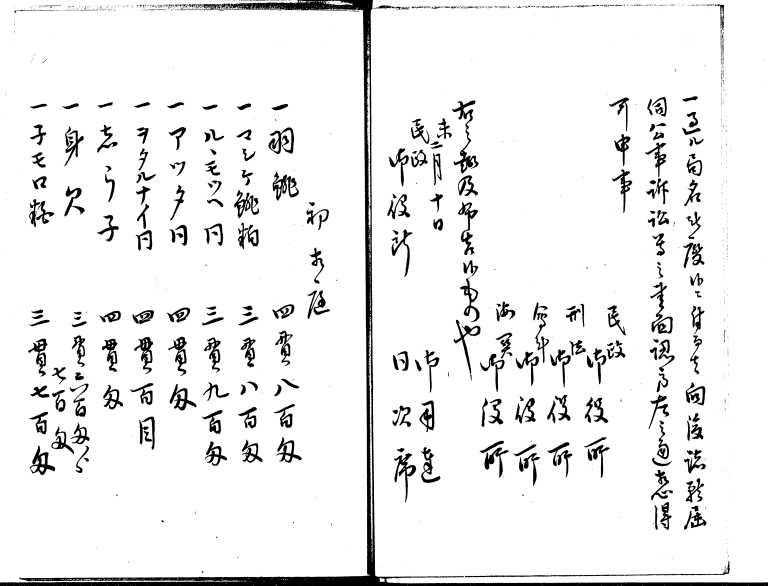 一過ル局名 廃 ニ付 向後諸願届
伺公事訴訟等之書面認方左之通相心得
可申事
民政御役所
刑法御役所
会計御役所
海運御役所
右之趣及布告候もの也
未二月十日
民政
御役所
御用達
日次席
初相場
一羽鯡 四貫八百匁
一マシケ鯡粕 三貫八百匁
一ルヽモツヘ同 三貫九百匁
一アツタ同 四貫匁
一ヲタルナイ同 四貫百目
一志ら子 四貫匁
一身欠 三貫六百匁ゟ
七百匁
一子モロ粕 三貫七百匁